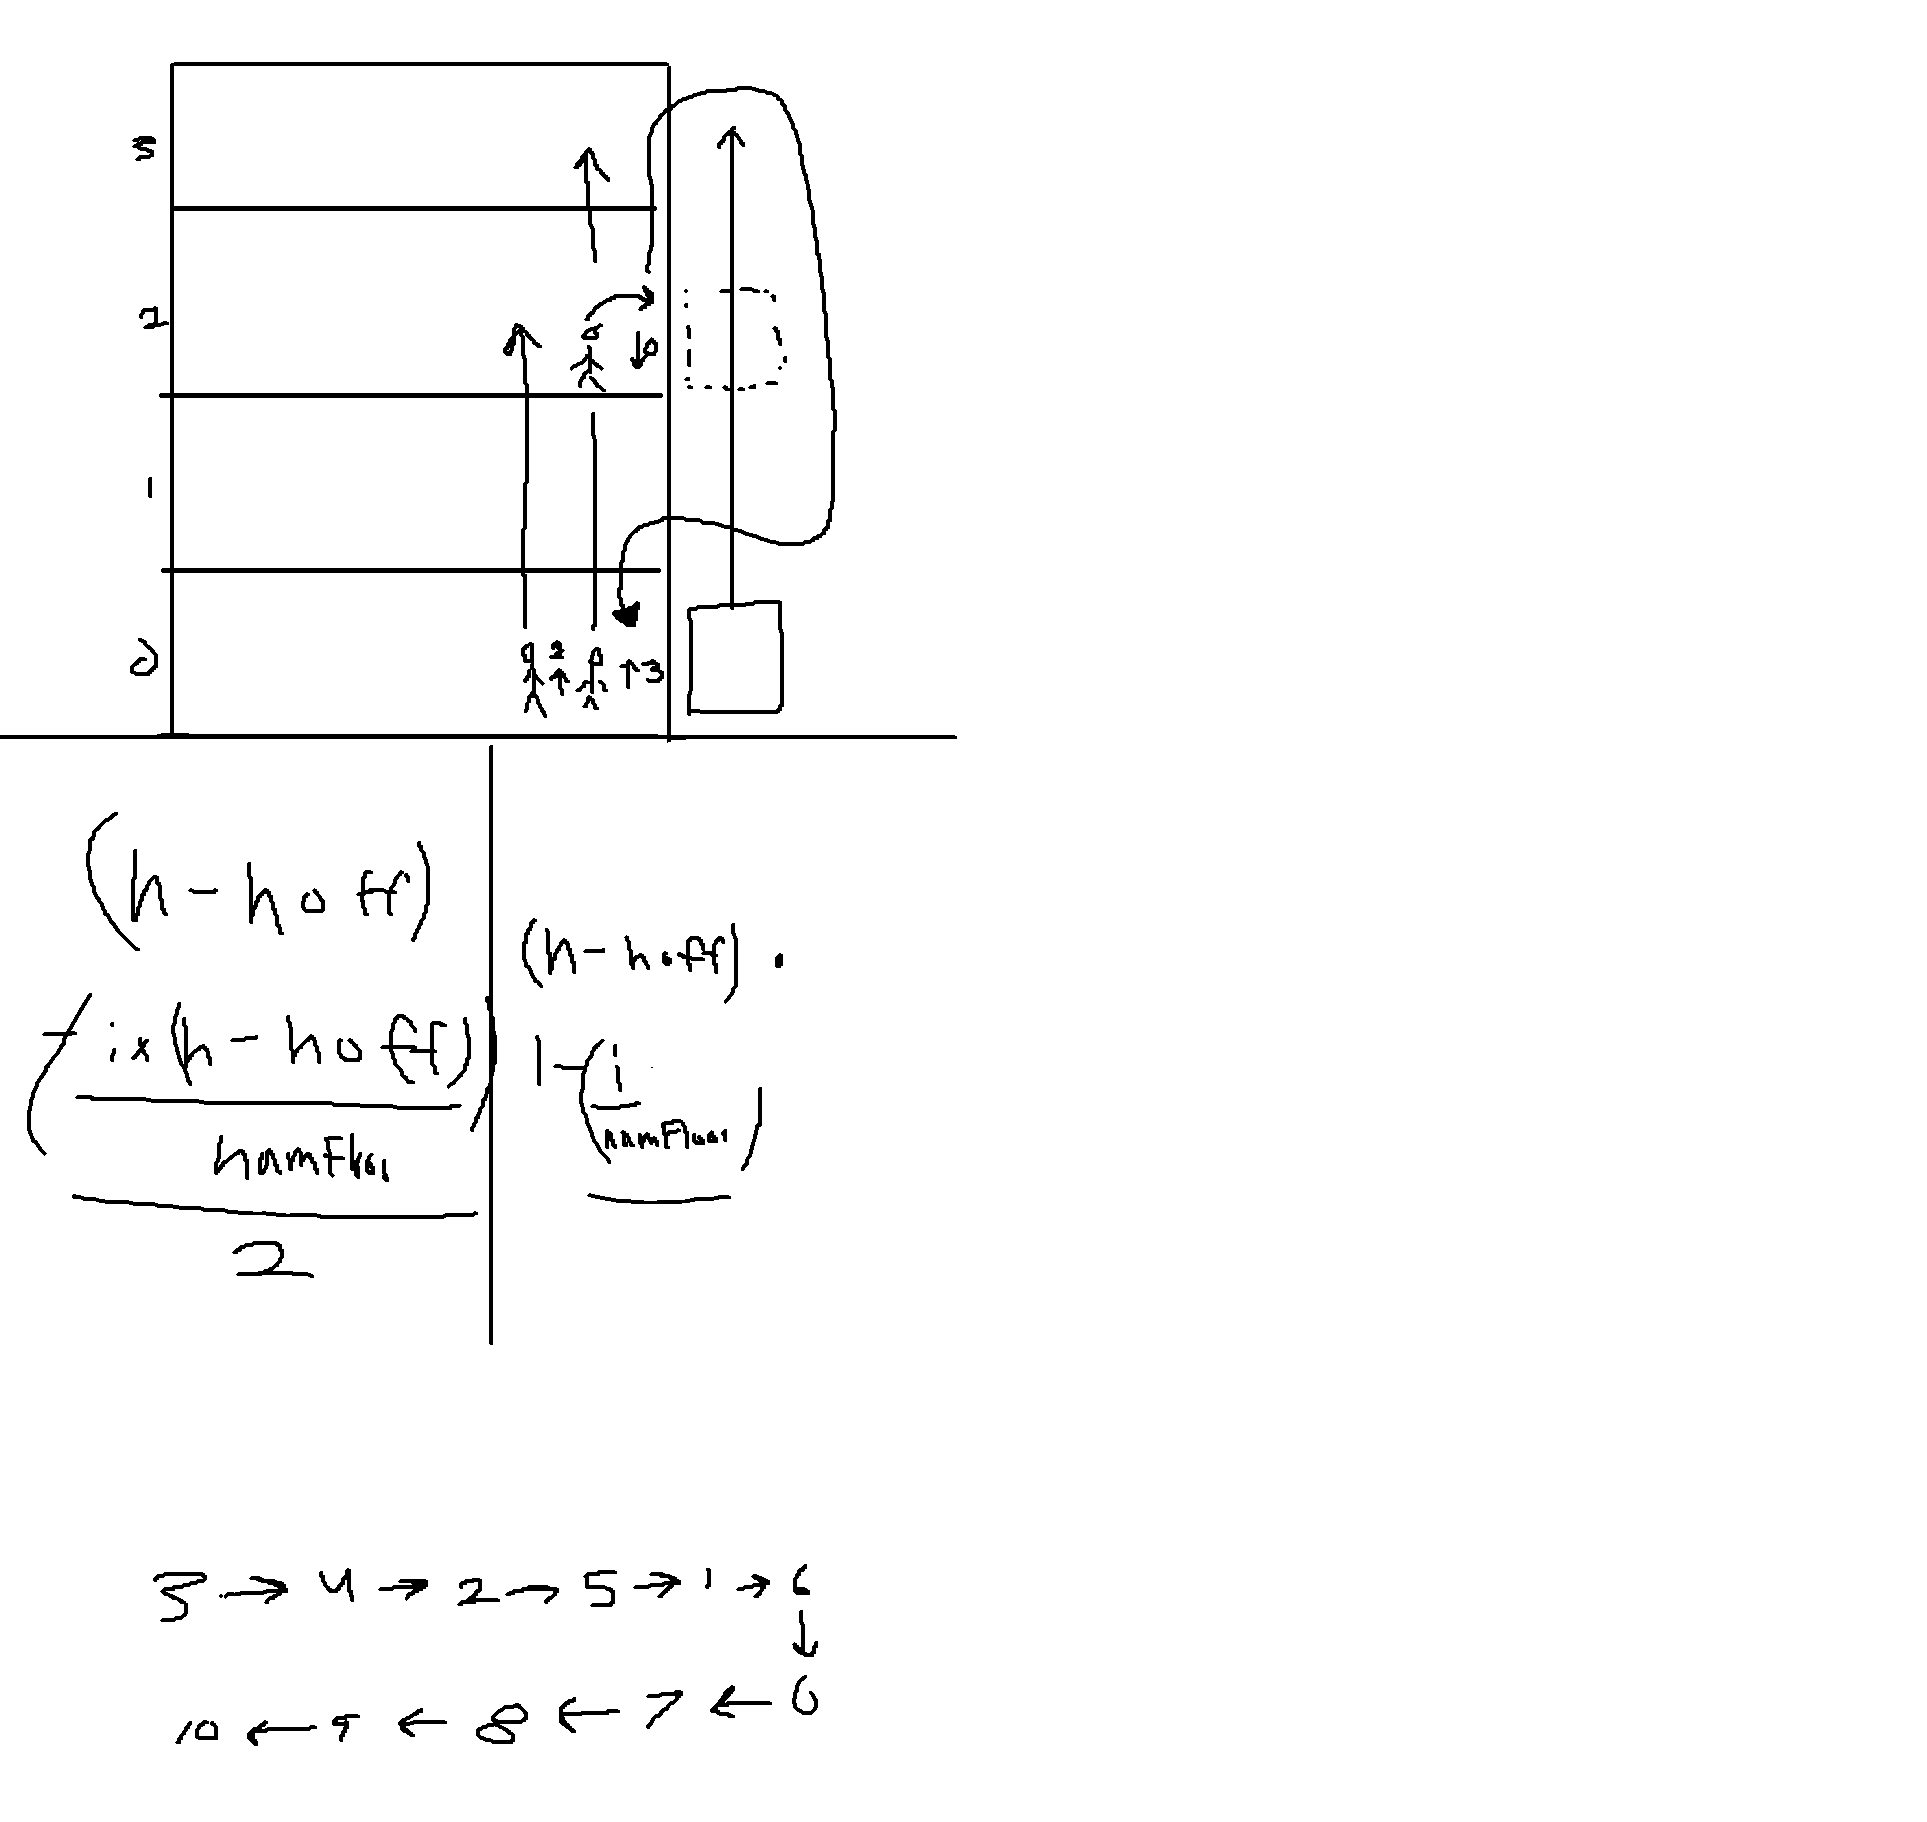 3
2
↓0
1
0
2
↑
↑3
(h - hoff)
- (i x (h - hoff)
numFloor)
2
(h - hoff) ·
1 - (i
numFloor)
3 → 4 → 2 → 5 → 1 → 6
↓
10 ← 9 ← 8 ← 7 ← 0